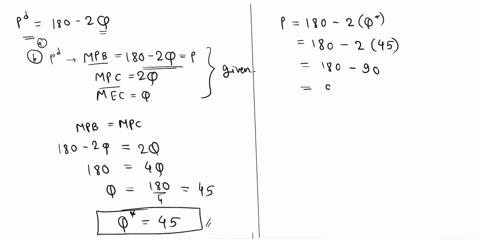 P^d = 180 - 2φ
(a)
(b) P^d → MPB = 180 - 2φ = P
MPC = 2φ
MEC = φ
} given.
MPB = MPC
180 - 2φ = 2φ
180 = 4φ
φ = 180/4 = 45
φ* = 45 //
P = 180 - 2(φ*)
= 180 - 2(45)
= 180 - 90
=